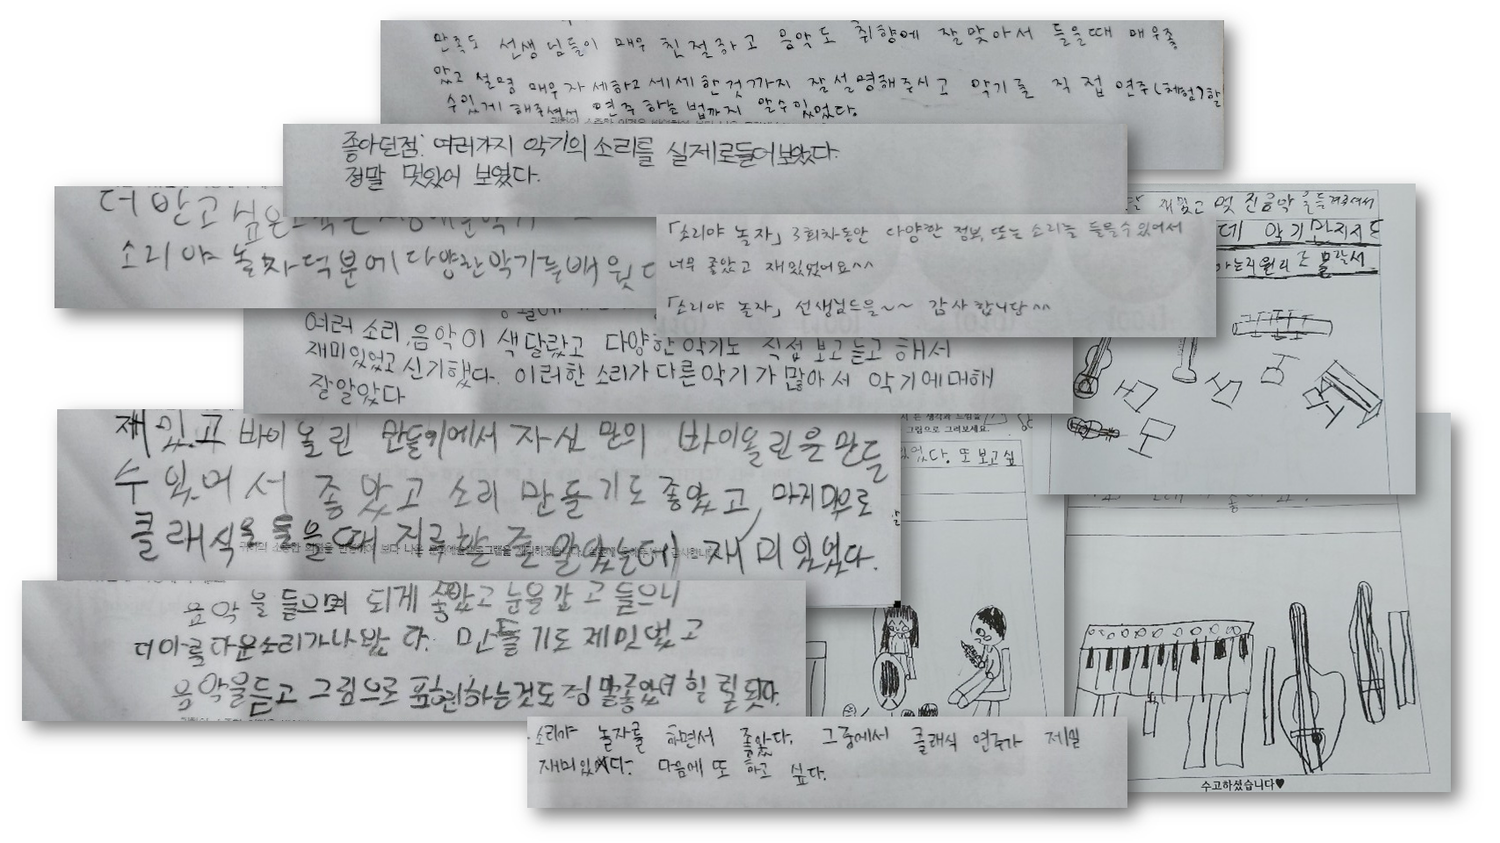 만족도 선생님들이 매우 친절하고 음악도 취향에 잘맞아서 들을때 매우좋
았고 설명 매우자세하고 세세한것까지 잘설명해주시고 악기를 직접 연주(체험)할
수있게 해주셔서 연주하는법까지 알수있었다.
좋아던점: 여러가지 악기의 소리를 실제로들어보았다.
정말 멋있어 보였다.
더 알고 싶은
소리야 놀자덕분에 다양한악기를배웠다
「소리야 놀자」 3회차동안 다양한 정보 또는 소리를 들을수있어서
너무 좋았고 재있었어요^^
「소리야 놀자」 선생님드을~~ 감사합니당^^
여러 소리,음악이 색달랐고 다양한 악기도 직접 보고듣고 해서
재미있었고신기했다. 이러한 소리가다른악기가많아서 악기에대해
잘알았다
재있고 바이올린 만들기에서 자신 만의 바이올린을만들
수 있어서 좋았고 소리 만들기도좋았고, 마지막으로
클래식을 들을때 지루할 줄 알았는데 재미있었다.
음악을 들으며 되게 좋았고 눈을감고들으니
더아름다운소리가나왔다. 만들기도 제밌었고
음악을듣고 그림으로 표현하는것도정말좋았다 힐링됫다.
소리야 놀자를 하면서 좋았다. 그중에서 클래식 연주가 제일
재미있었다. 다음에 또 하고 싶다.
재밌고 멋진음악을들려주셔서
악기만지지도
그림으로 그려보세요.
었다. 또 보고싶
수고하셨습니다♥